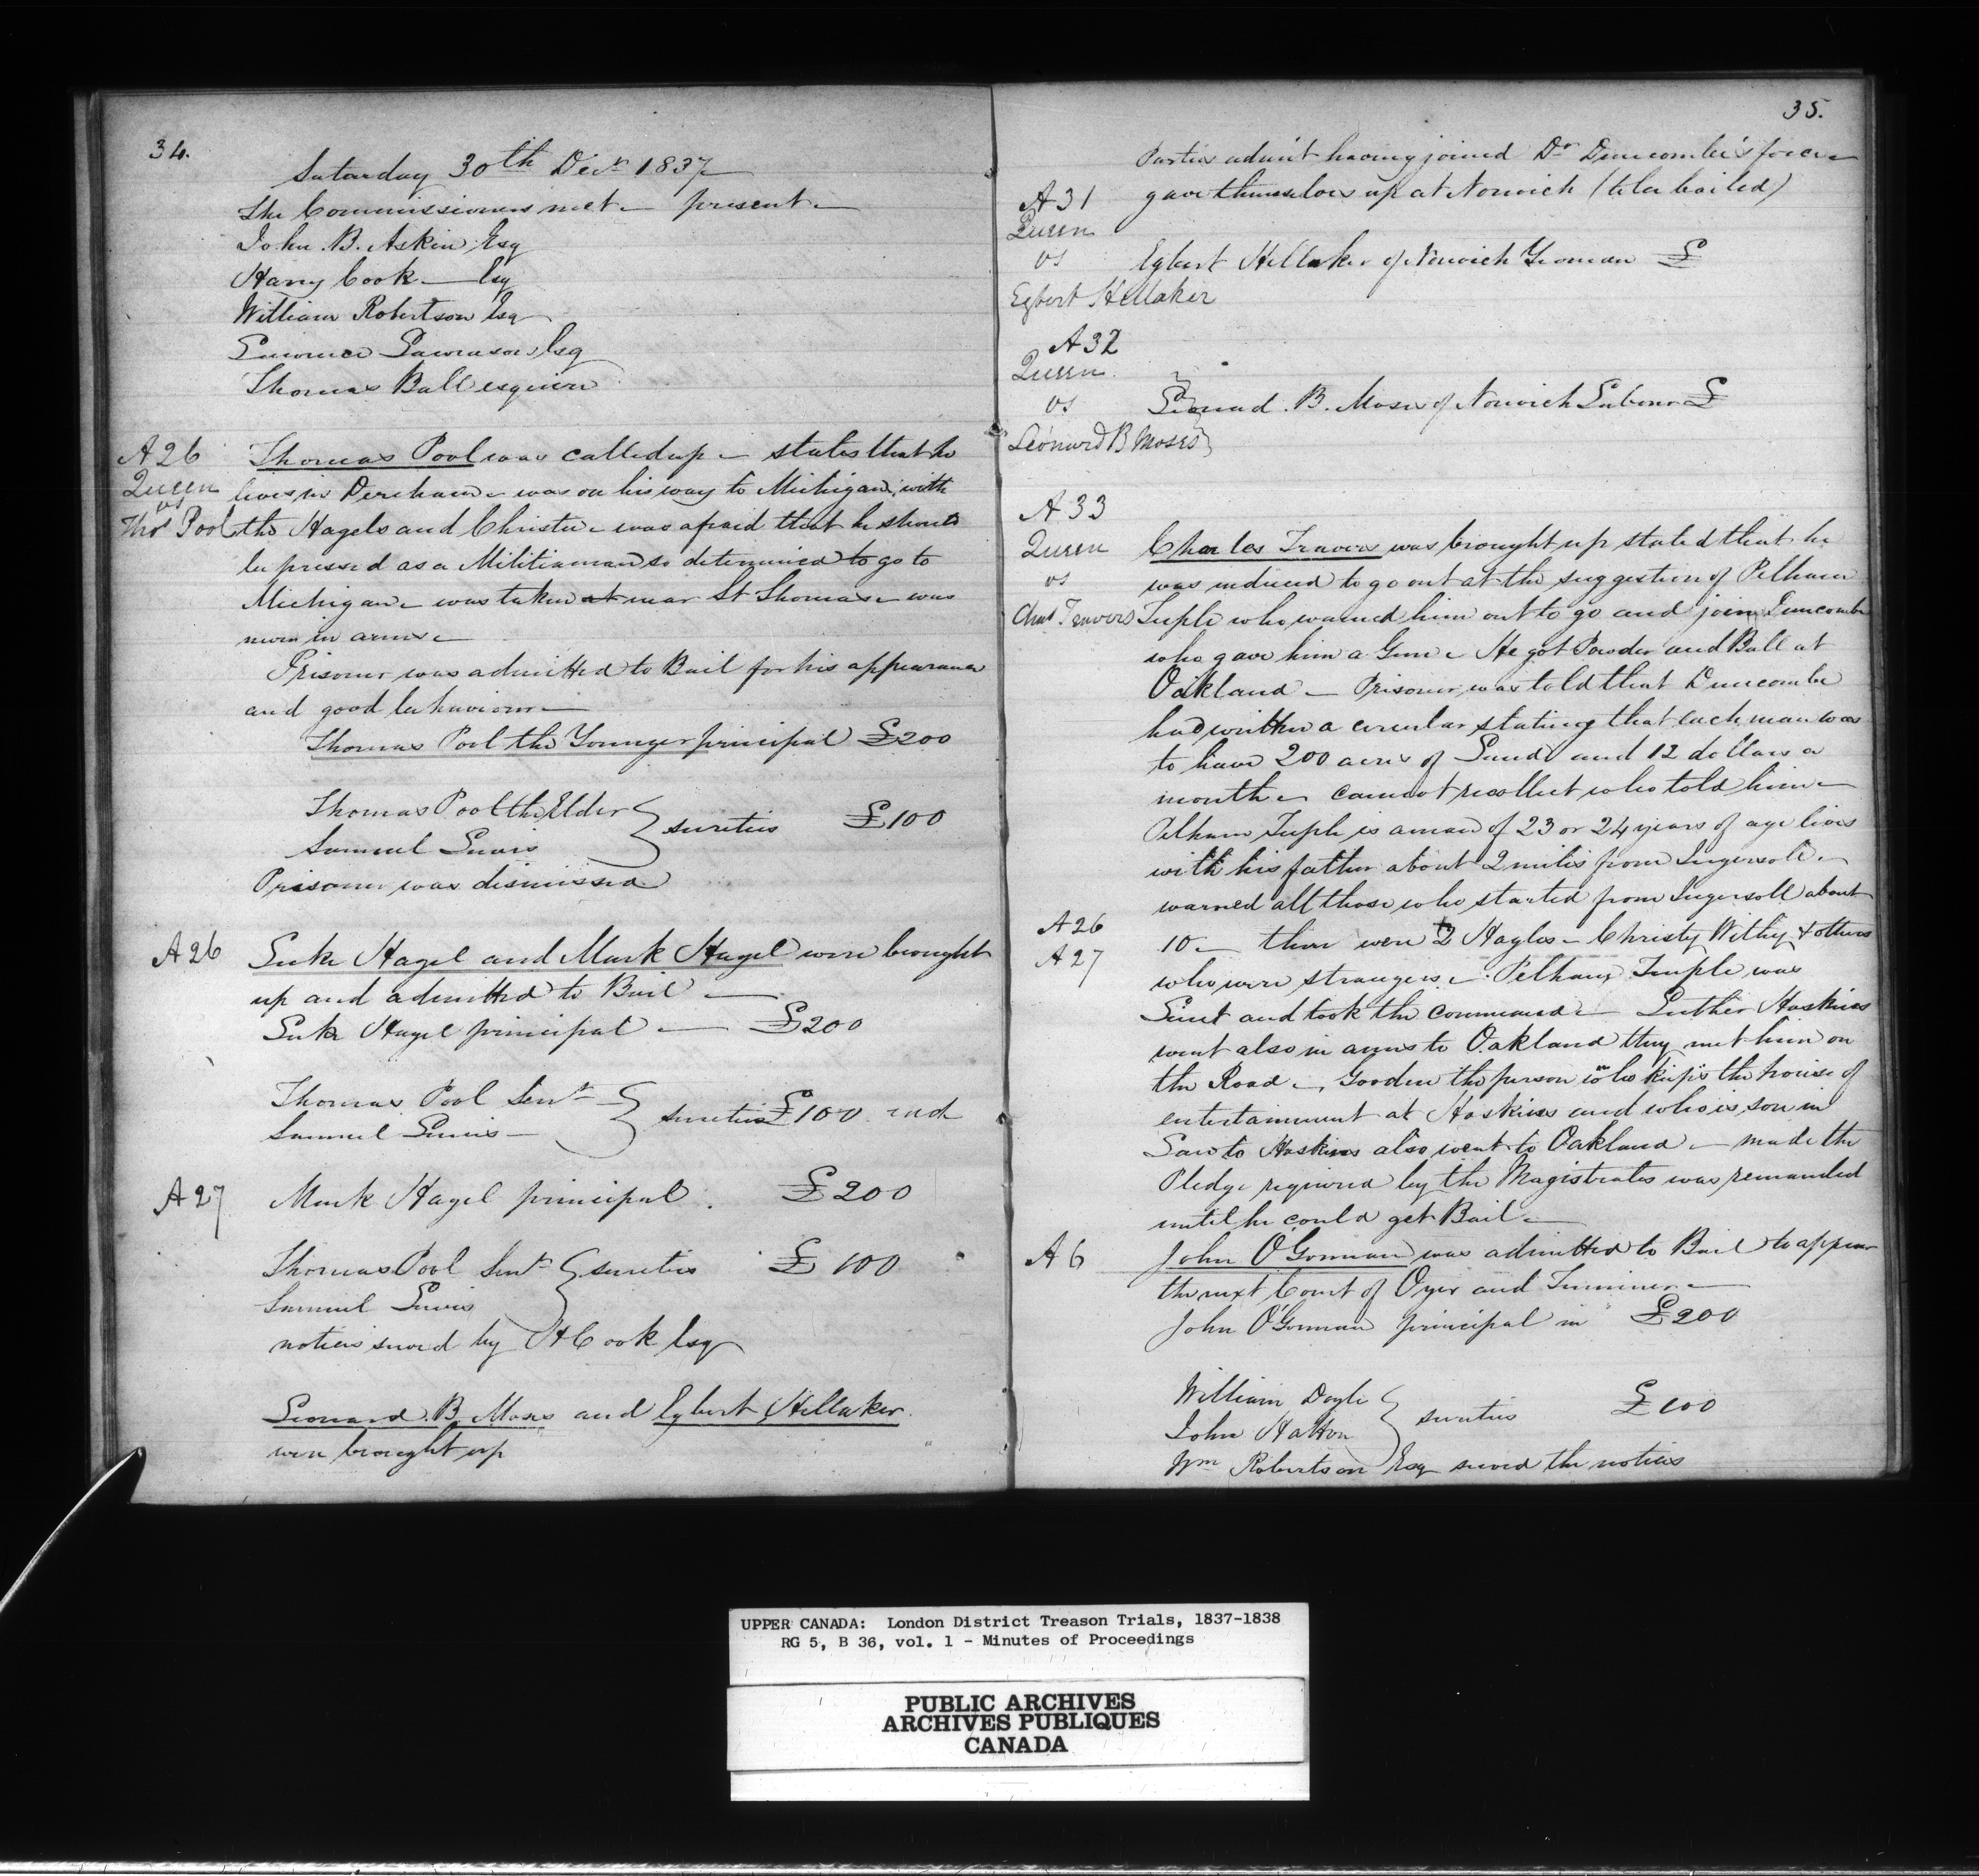 34.
Saturday 30th Decr 1837
The Commissioners met — present —
John. B. Askin Esq
Harry Cook — Esq
William Robertson Esq
Lawrence Lawrason Esq
Thomas Ball esquire
A 26
Queen
vs
Thos Pool
Thomas Pool was called up — states that he
lives in Dereham — was on his way to Michigan, with
the Hagels and Christie — was afraid that he should
be pressed as a Militiaman so determined to go to
Michigan — was taken at near St Thomas — was
never in arms —
Prisoner was admitted to Bail for his appearance
and good behaviour —
Thomas Pool the Younger principal £200
Thomas Pool the Elder
Samuel
sureties £100
Prisoner was dismissed
A 26
Luke Hagel and Mark Hagel were brought
up and admitted to Bail —
Luke Hagel principal — £200
Thomas Pool Senr —
Samuel
sureties £100 each
A 27
Mark Hagel principal . £200
Thomas Pool Senr sureties £100
Samuel
notices served by H Cook Esq
Leonard. B. Moses and Egbert Hellaker.
were brought up
35.
Parties admit having joined Dr Duncombe's force —
gave themselves up at Norwich (to be bailed)
A 31
Queen
vs
Egbert Hellaker
Egbert Hellaker of Norwich Yeoman £
A 32
Queen
vs
Leonard B Moses
Leonard. B. Moses of Norwich Labourer £
A 33
Queen
vs
Chas Travers
Charles Travers was brought up stated that he
was induced to go out at the suggestion of Pelham
Teeple who warned him out to go and join Duncombe
who gave him a Gun — He got Powder and Ball at
Oakland — Prisoner was told that Duncombe
had written a circular stating that each man was
to have 200 acres of Land and 12 dollars a
month — cannot recollect who told him —
Pelham Teeple is a man of 23 or 24 years of age lives
with his father about 2 miles from Ingersoll. —
warned all those who started from Ingersoll about
A 26
A 27
10 — there were 2 Hagles — Christy, Withy & others
who were strangers — Pelham Teeple was
Lieut and took the command — Luther Hoskins
went also in arms to Oakland they met him on
the Road — Gooden the person who keeps the house of
entertainment at Hoskins and who is son in
Law to Hoskins also went to Oakland — made the
Pledge required by the Magistrates was remanded
until he could get Bail —
A 6
John O'Gorman was admitted to Bail to appear
the next Court of Oyer and Terminer —
John O'Gorman principal in £200
William Doyle
John Hatton
sureties £100
Wm Robertson Esq served the notices
UPPER CANADA: London District Treason Trials, 1837-1838
RG 5, B 36, vol. 1 - Minutes of Proceedings
PUBLIC ARCHIVES
ARCHIVES PUBLIQUES
CANADA